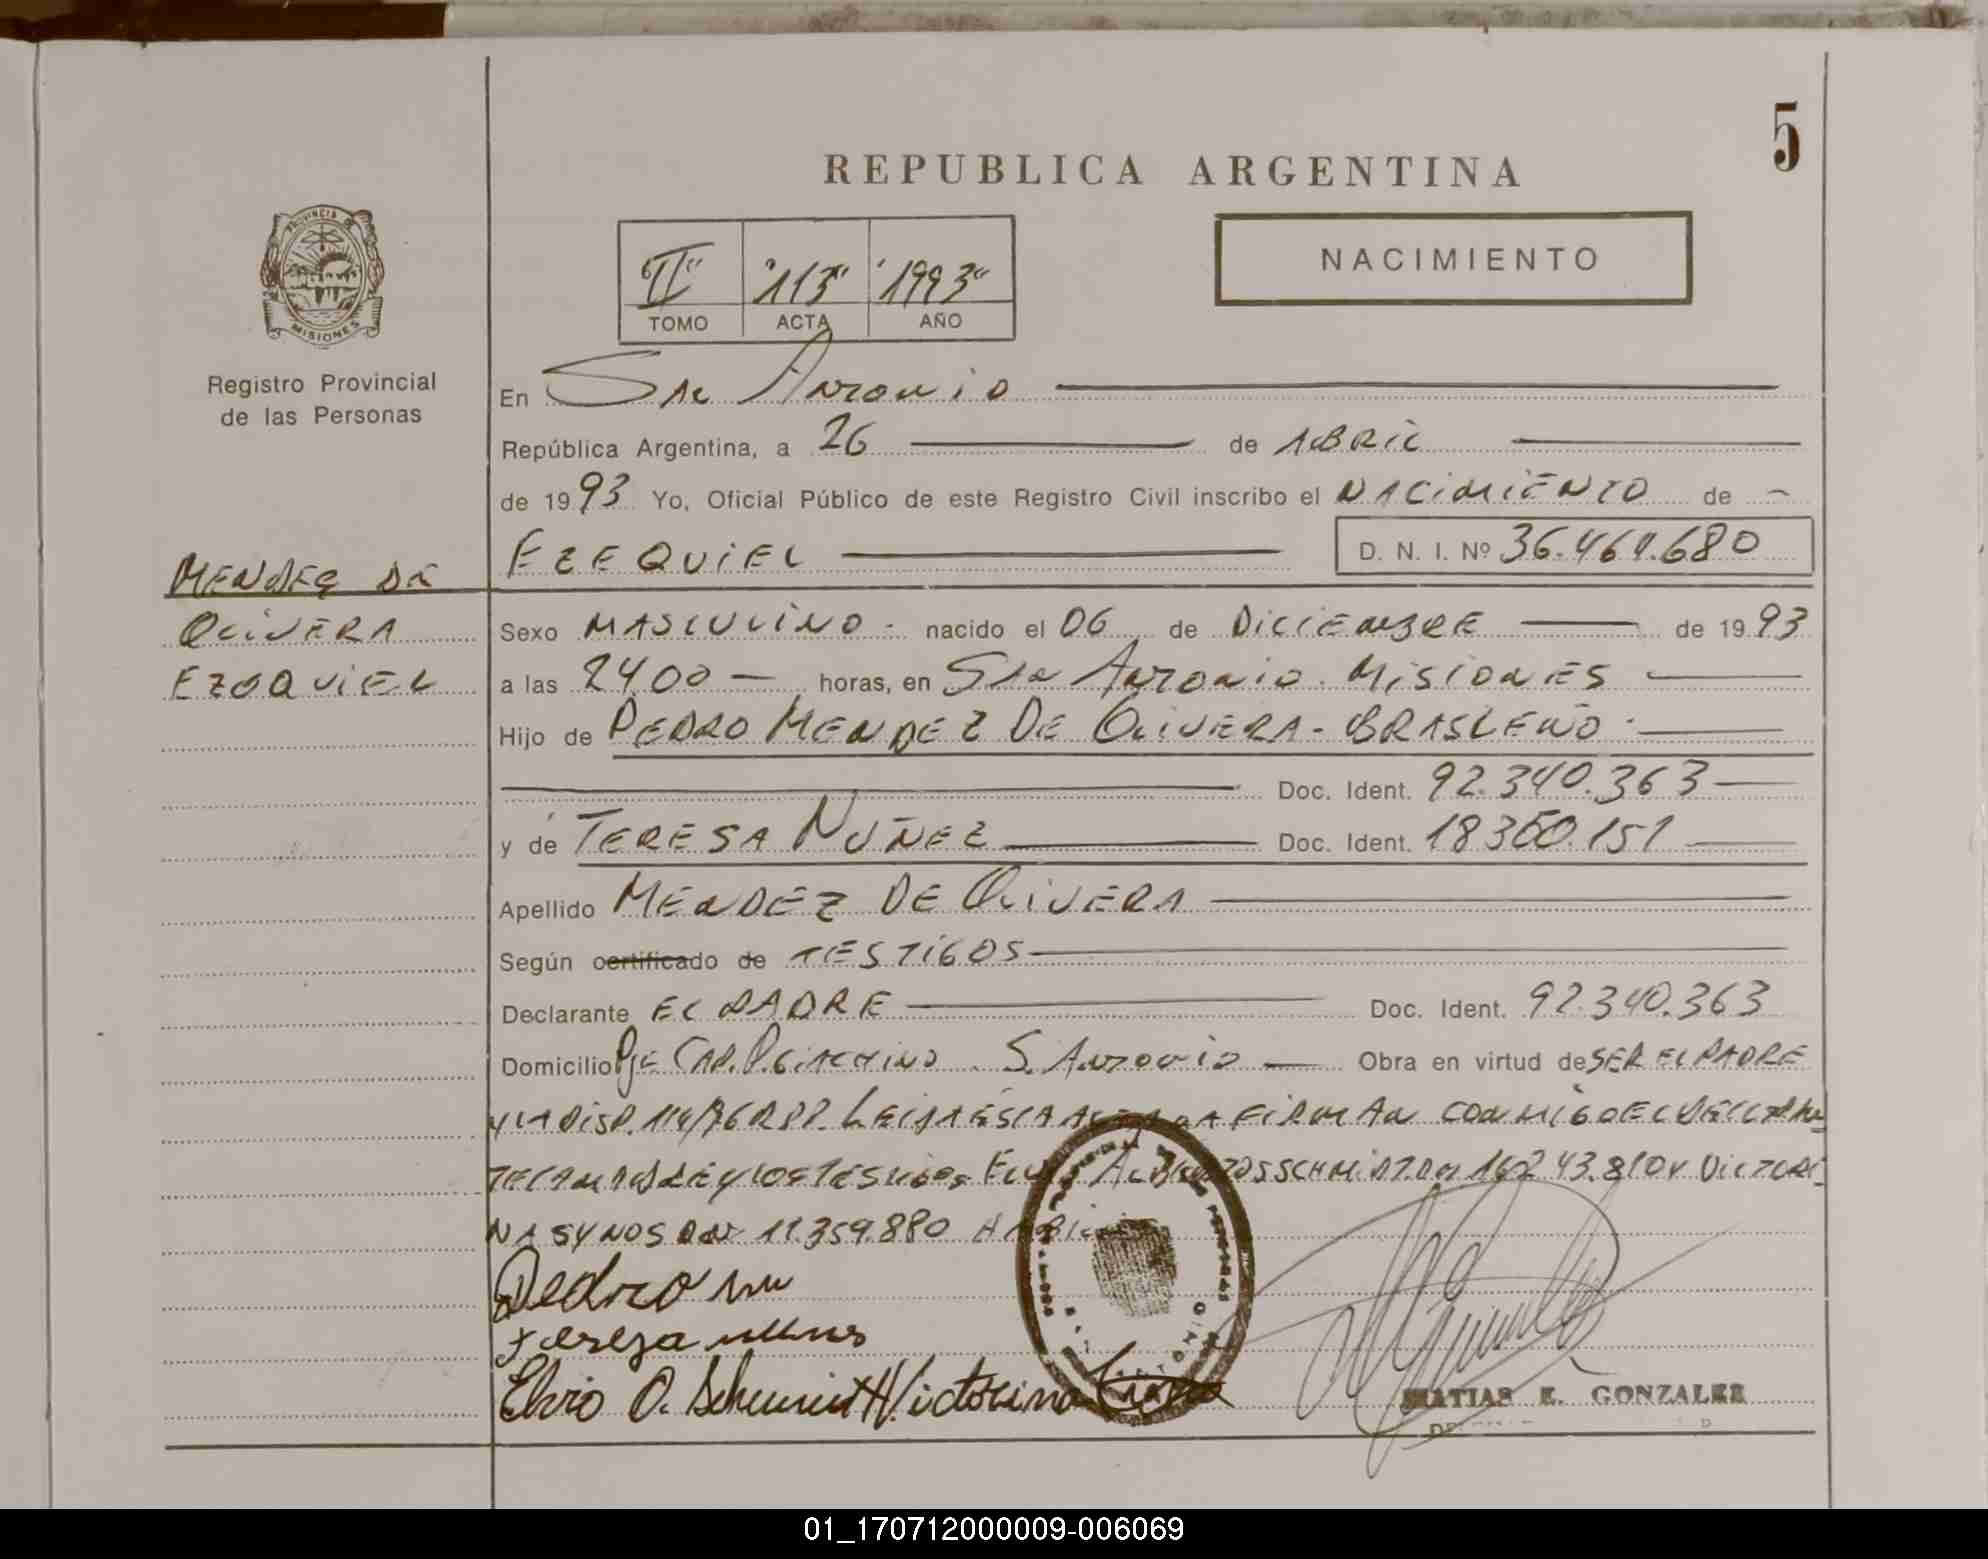 5
REPUBLICA ARGENTINA
PROVINCIA DE
MISIONES
Registro Provincial
de las Personas
"II" "113" "1993"
TOMO ACTA AÑO
NACIMIENTO
En San Antonio
República Argentina, a 26 de ABRIL
de 1993 Yo, Oficial Público de este Registro Civil inscribo el NACIMIENTO de -
EZEQUIEL D. N. I. Nº 36.461.680
MENDEZ DE
OLIVERA
EZEQUIEL
Sexo MASCULINO - nacido el 06 de DICIEMBRE de 1993
a las 24,00 horas, en San Antonio. MISIONES
Hijo de PEDRO MENDEZ DE OLIVERA - BRASLEÑO -
Doc. Ident. 92.340.363
y de TERESA NUÑEZ Doc. Ident. 18360.151
Apellido MENDEZ DE OLIVERA
Según certificado de TESTIGOS
Declarante EL PADRE Doc. Ident. 92.340.363
Domicilio Pje CAP. P. GIACHINO. S. Antonio Obra en virtud de SER EL PADRE
Y LA DISP. 114/76 RPP. LEIDA ESTA ACTA LA FIRMAN CONMIGO EL DECLARAN
TE LA MADRE Y LOS TESTIGOS SCHMIDT DNI 16243.810 Y VICTORI
NA SYNOS DNI 11.359.880
Pedro
Tereza
Elvio O. Schmidt Victorina
MATIAS E. GONZALEZ
01_170712000009-006069